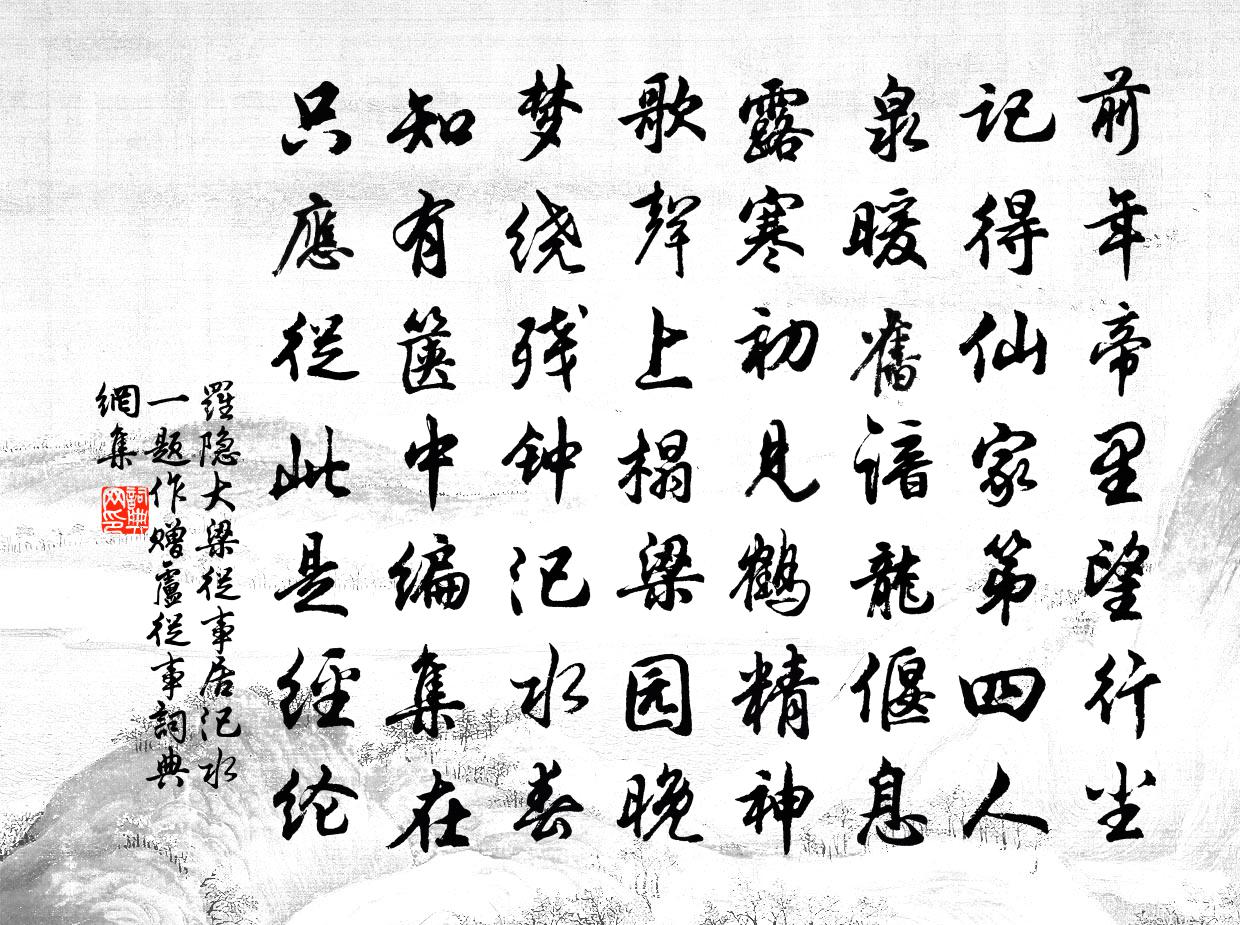 前年帝里望行尘
记得仙家第四人
泉暖旧谙龍偃息
露寒初见鹤精神
歌聲上榻梁园晚
梦绕残钟汜水春
知有箧中编集在
只應從此是經纶
羅隐大梁從事居汜水
一题作赠盧從事詞典
網集
詞典网印